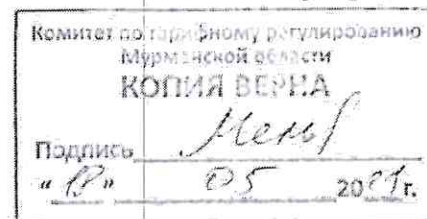 Комитет по тарифному регулированию
Мурманской области
КОПИЯ ВЕРНА
Подпись
" " 05 20 г.